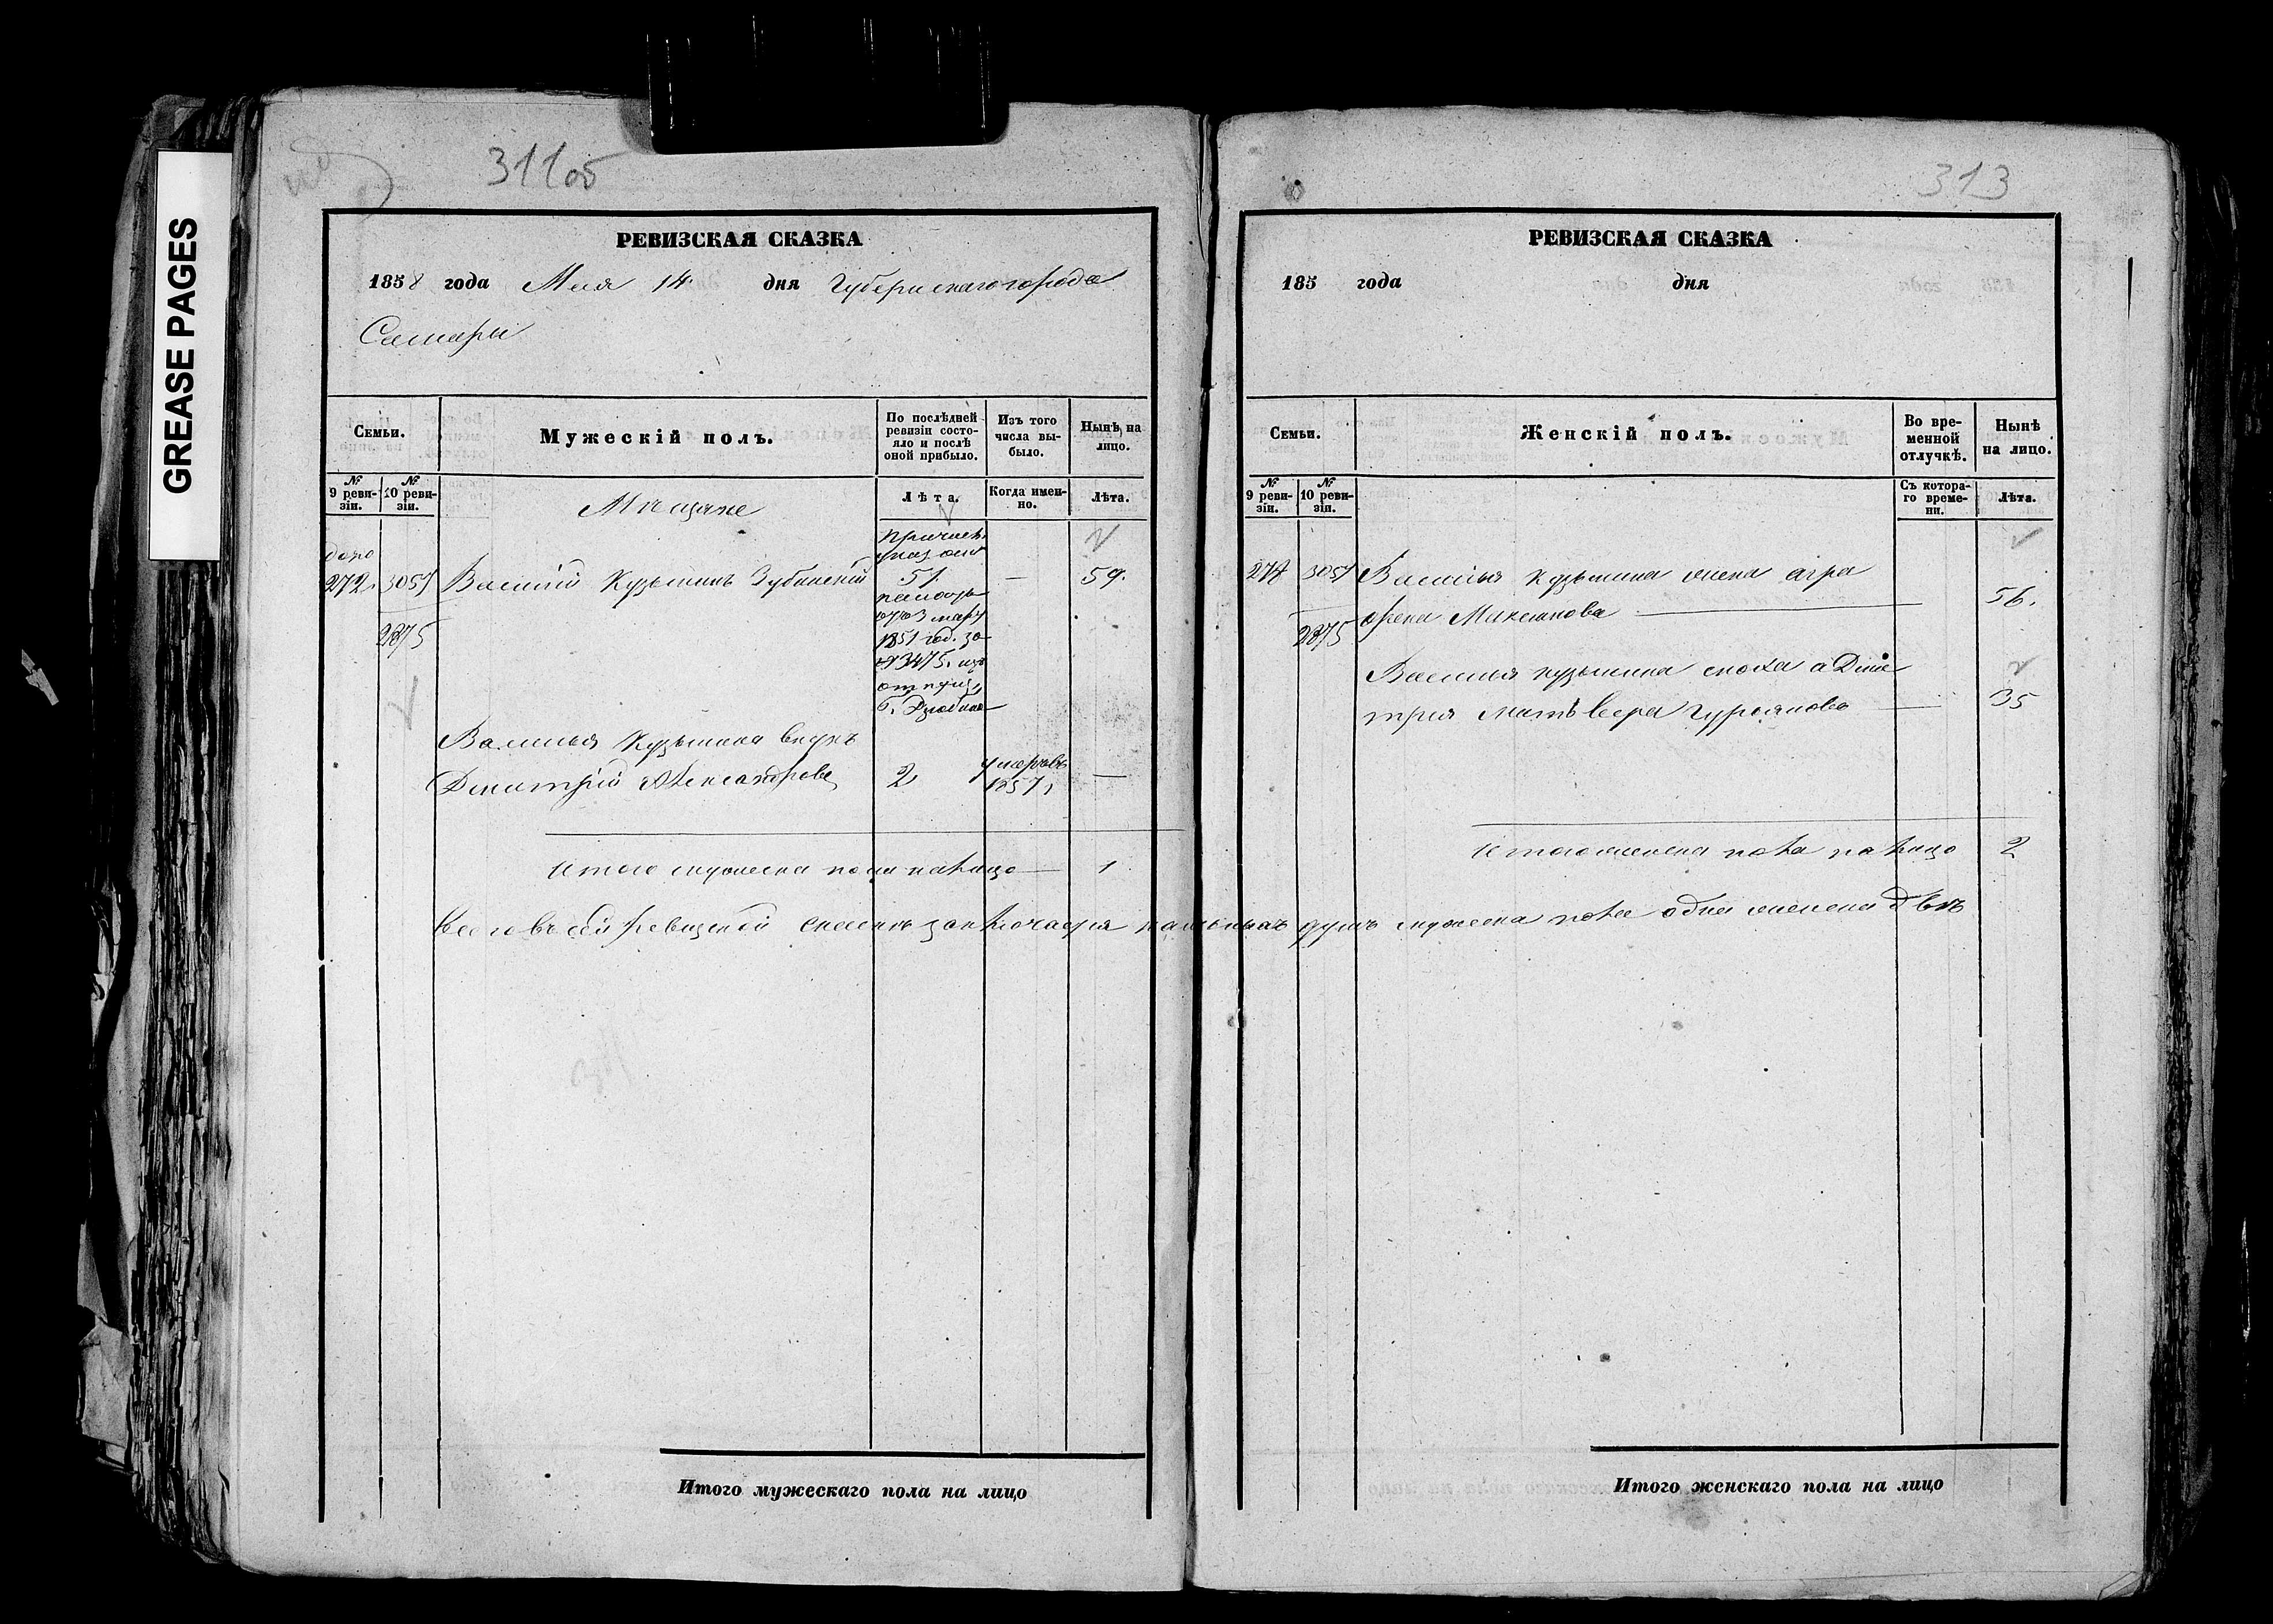 GREASE PAGES
311об
РЕВИЗСКАЯ СКАЗКА
1858 года Мая 14. дня Губернскаго города
Самары
Семьи.
Мужескій полъ.
По послѣдней ревизіи состояло и послѣ оной прибыло.
Изъ того числа выбыло.
Нынѣ на лицо.
№ 9 ревизіи.
№ 10 ревизіи.
Лѣта.
Когда именно.
Лѣта.
Мѣщане
272. 3051 Василій Кузьминъ Зубинскій 51. — 59.
2875
1851 год. за
№ 3475. изъ
Василья Кузьмина внукъ
Дмитрій Александровъ 2 умеръ въ 1857, —
Итого мужеска пола налицо — 1
Всего въ сей ревизской сказкѣ заключается наличныхъ душъ мужеска пола одна женска двѣ
Итого мужескаго пола на лицо
313
РЕВИЗСКАЯ СКАЗКА
185 года дня
Семьи.
Женскій полъ.
Во временной отлучкѣ.
Нынѣ на лицо.
№ 9 ревизіи.
№ 10 ревизіи.
Съ котораго времени.
Лѣта.
272 3051 Василья Кузьмина жена Агра
фена Максимова — 56.
2875
Василья Кузьмина сноха
Гурьянова — 35
Итого женска пола налицо 2
Итого женскаго пола на лицо